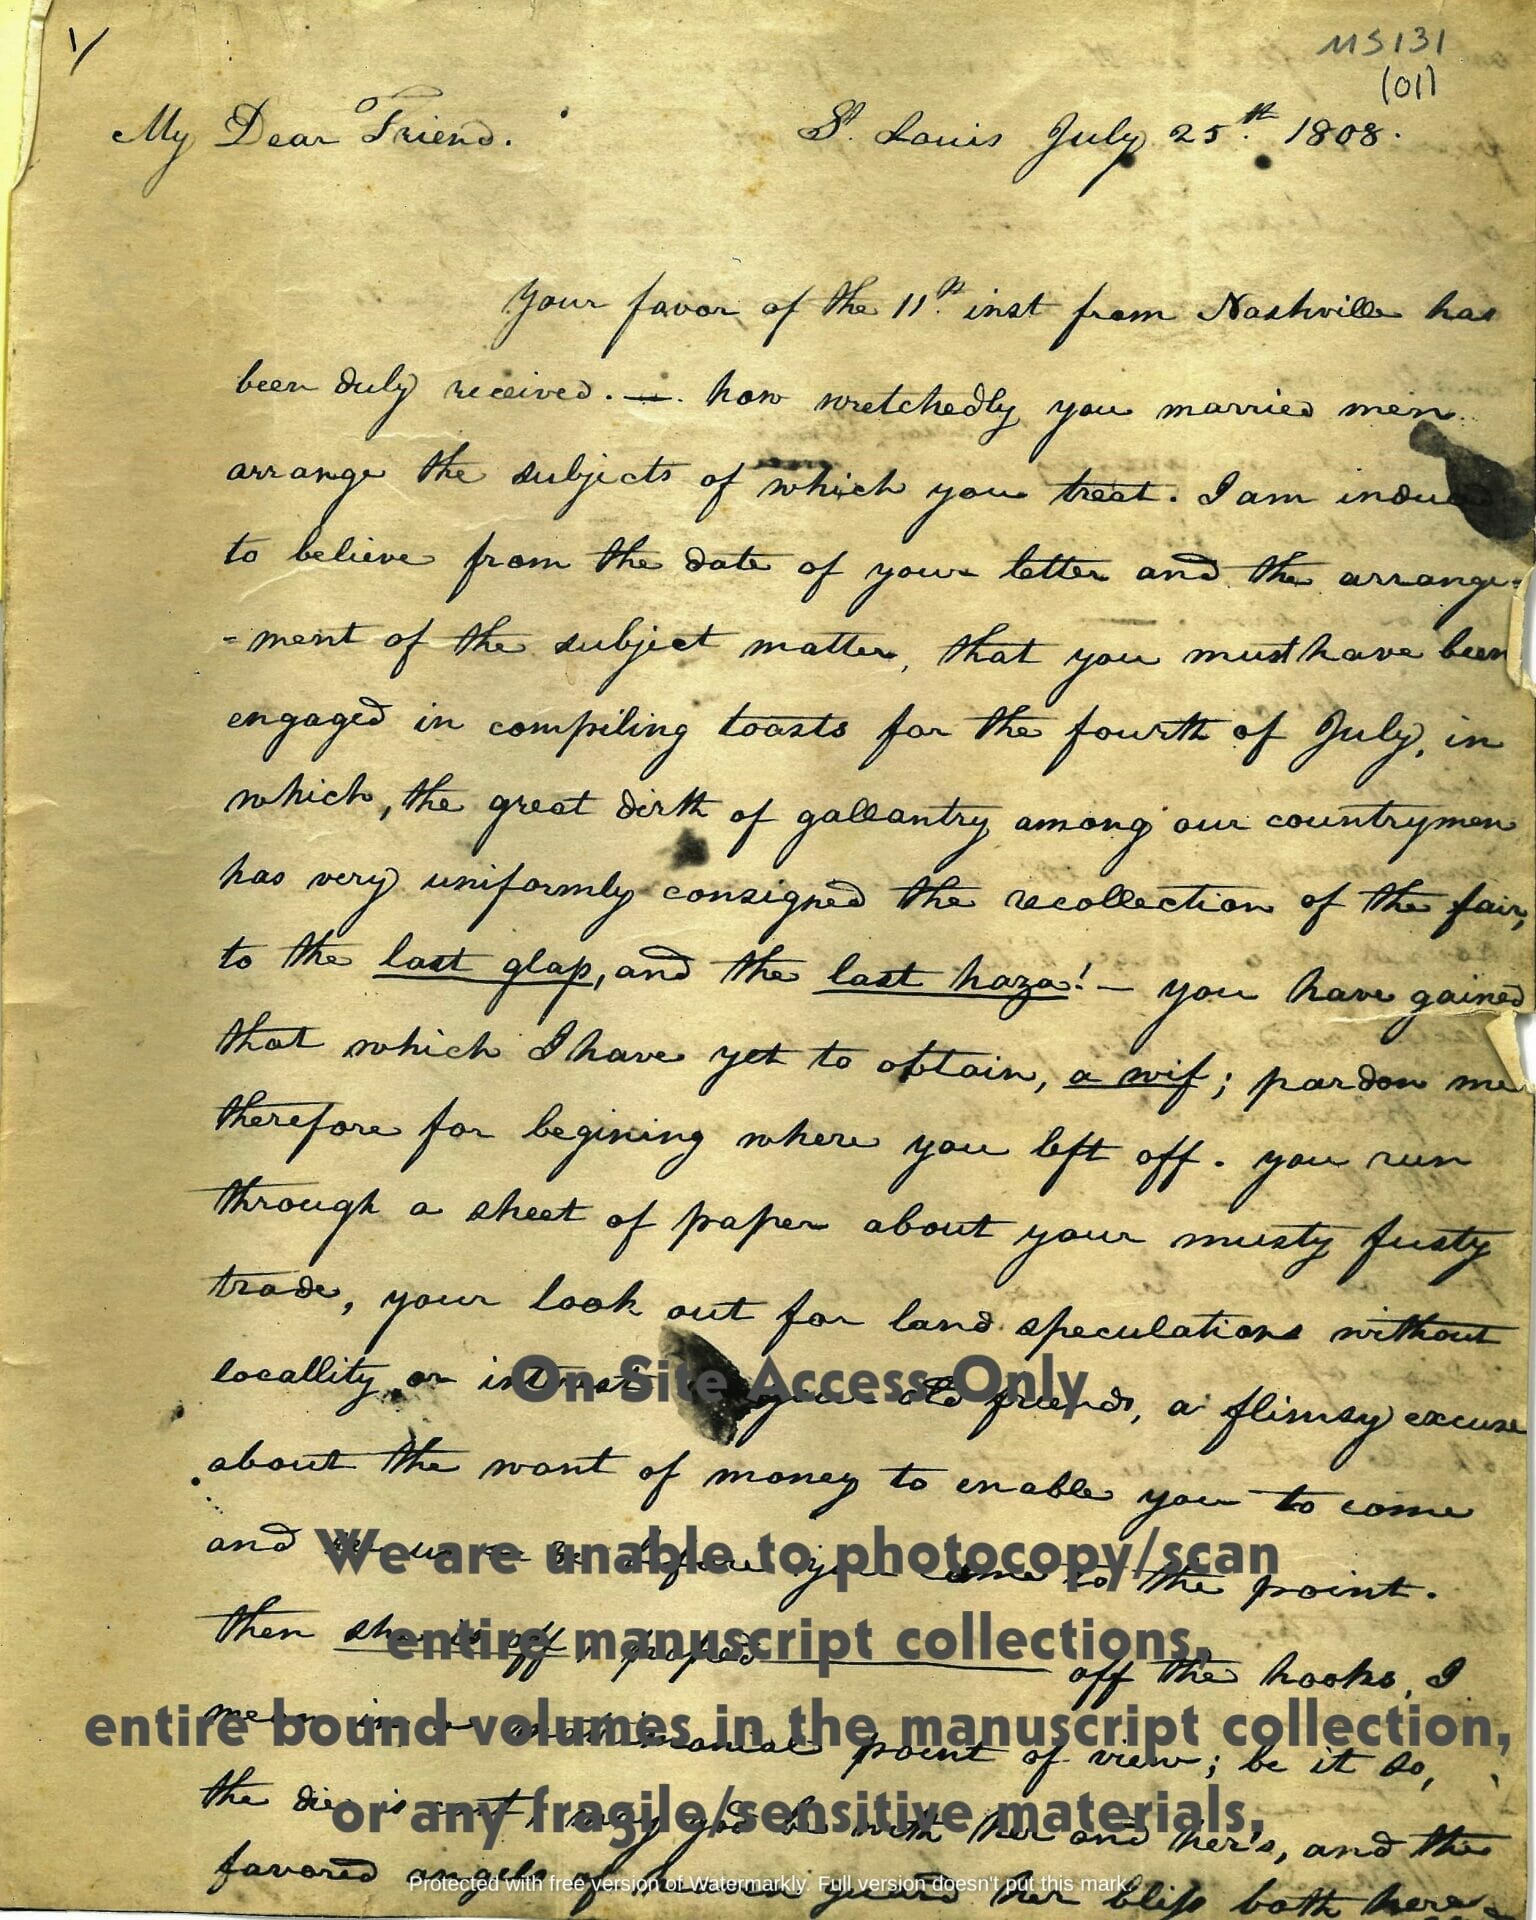 1/
MS131
(01)
My Dear Friend.
St. Louis July 25th. 1808.
Your favor of the 11th. inst from Nashville has
been duly received. — how wretchedly you married men
arrange the subjects of which you treat. I am induced
to believe from the date of your letter and the arrange-
-ment of the subject matter, that you must have been
engaged in compiling toasts for the fourth of July, in
which, the great dirth of gallantry among our countrymen
has very uniformly consigned the recollection of the fair,
to the last glap, and the last haza! — you have gained
that which I have yet to obtain, a wif; pardon me
therefore for begining where you left off. you run
through a sheet of paper about your musty fusty
trade, your look out for land speculations without
locallity or your old friends, a flimsy excuse
On-Site Access Only
about the want of money to enable you to come
and before you come to the point.
We are unable to photocopy/scan
then she is off off the hooks, I
entire manuscript collections,
mean in a matrimonial point of view; be it so,
entire bound volumes in the manuscript collection,
the die is cast, may god be with her and her's, and the
or any fragile/sensitive materials.
favored angels of heaven guard her bliss both here-
Protected with free version of Watermarkly. Full version doesn't put this mark.